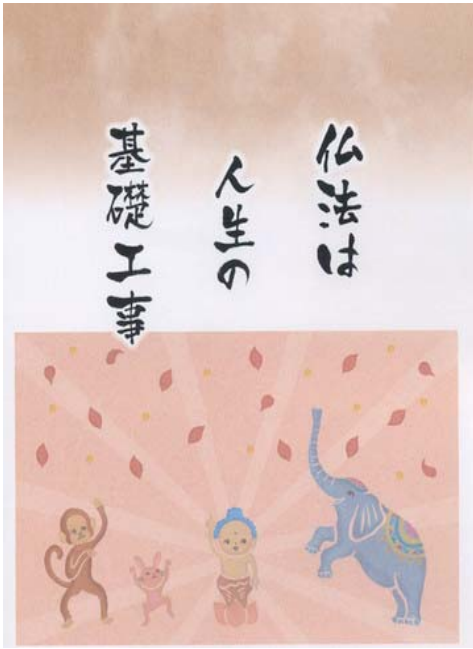 仏法は
人生の
基礎工事